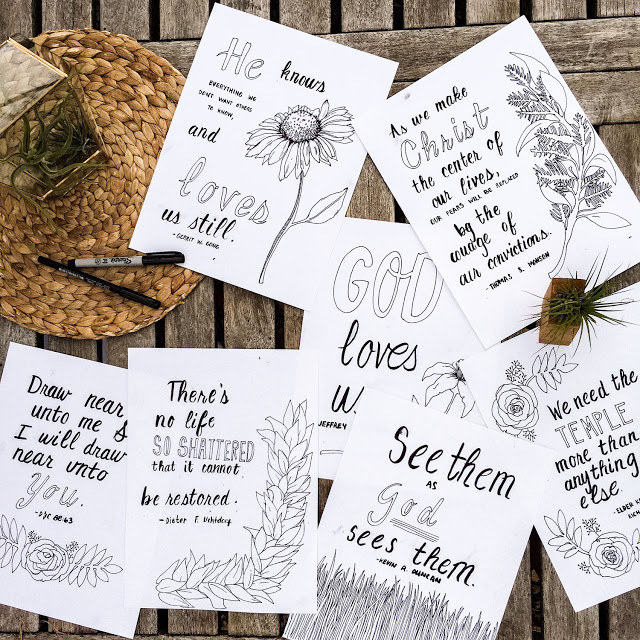 He knows
EVERYTHING WE
DON'T WANT OTHERS
TO KNOW,
and
loves
us still.
- GERRIT W. GONG
As we make
Christ
the center of
our lives,
OUR FEARS WILL BE REPLACED
by the
courage of
our convictions.
- THOMAS S. MONSON
GOD
loves
JEFFREY
Draw near
unto me &
I will draw
near unto
you.
- D&C 88:63
There's
no life
SO SHATTERED
that it cannot
be restored.
- Dieter F. Uchtdorf
See them
AS
God
sees them.
- KEVIN R. DUNCAN
We need the
TEMPLE
more than
anything
else.
- ELDER
Sharpie